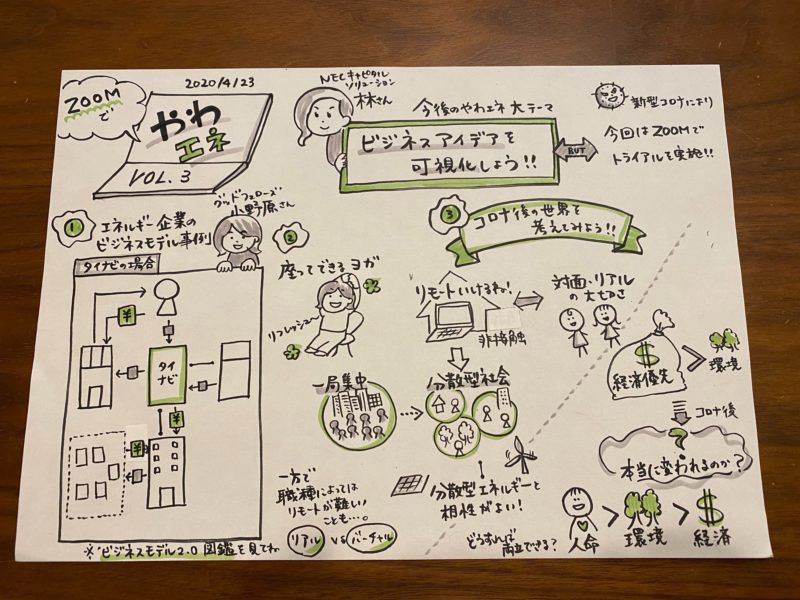 2020/4/23
ZOOMで
やわ
エネ
VOL.3
NECキャピタル
ソリューション
林さん
今後のやわエネ大テーマ
ビジネスアイデアを
可視化しよう!!
BUT
新型コロナにより
今回はZOOMで
トライアルを実施!!
グッドフェローズ
小野原さん
①
エネルギー企業の
ビジネスモデル事例
タイナビの場合
¥
タイ
ナビ
¥
¥
※ビジネスモデル2.0図鑑を見てね
②
座ってできるヨガ
リフレッシュ
③
コロナ後の世界を
考えてみよう!!
リモートいけるね!
非接触
対面・リアル
の大切さ
一局集中
分散型社会
分散型エネルギーと
相性がよい!
一方で
職種によっては
リモートが難しい
ことも…。
リアル VS バーチャル
どうすれば
両立できる?
$
経済優先
>
環境
コロナ後
?
本当に変われるのか?
人命 > 環境 > 経済
$